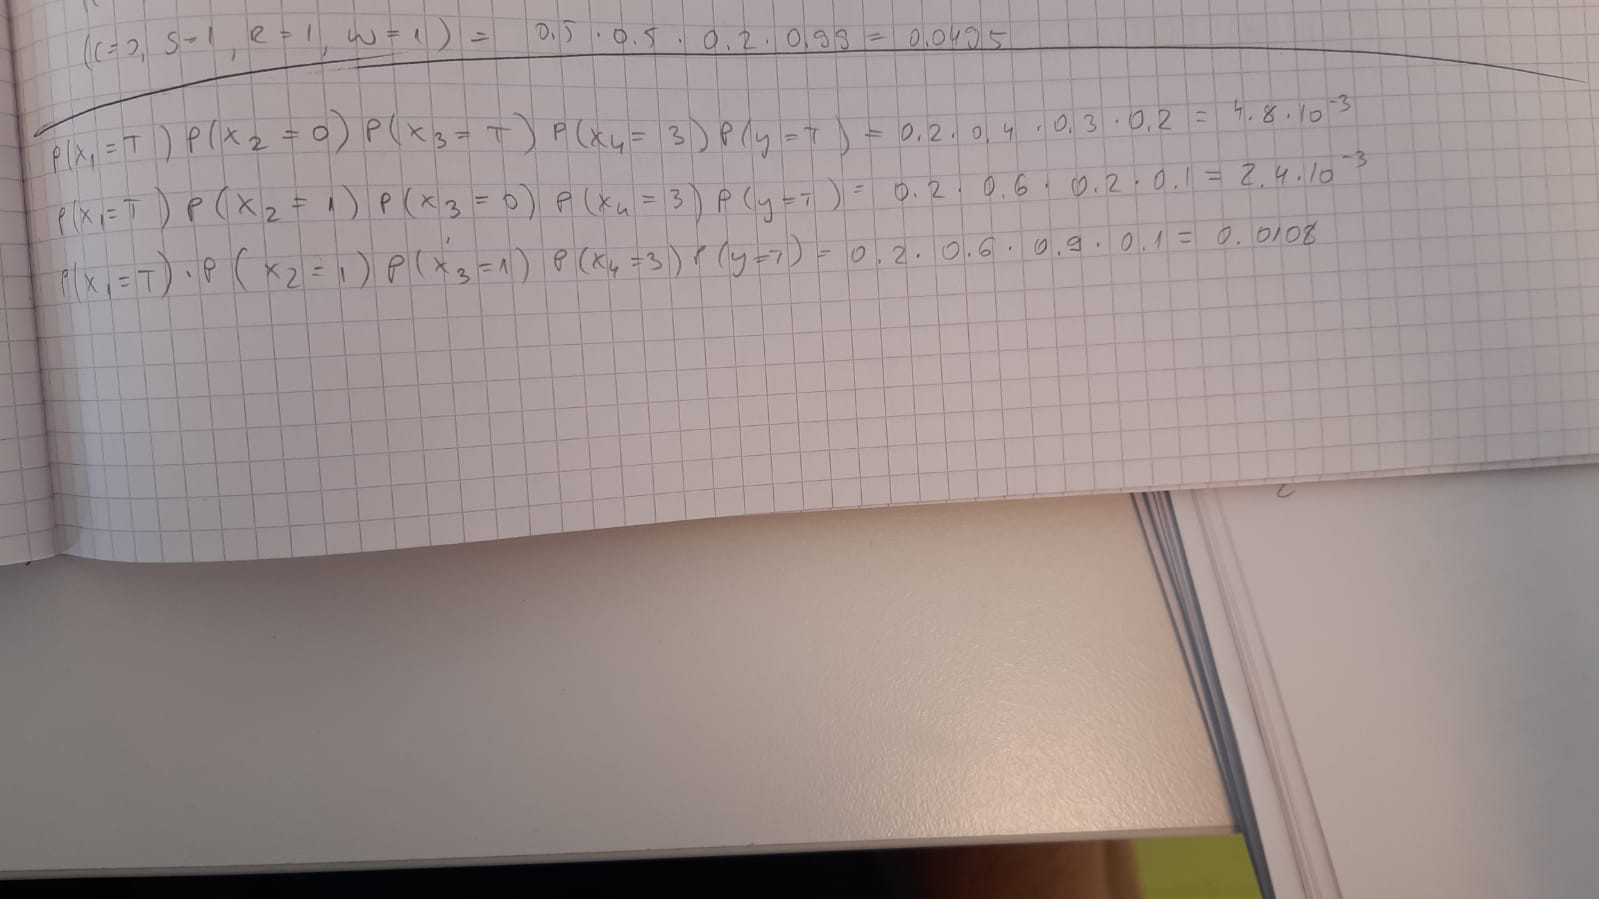 (c=0, S=1, R=1, w=1) = 0.5 · 0.5 · 0.2 · 0.99 = 0.0495
P(x₁=T) P(x₂=0) P(x₃=T) P(x₄=3) P(y=T) = 0.2 · 0.4 · 0.3 · 0.2 = 4.8 · 10⁻³
P(x₁=T) P(x₂=1) P(x₃=0) P(x₄=3) P(y=T) = 0.2 · 0.6 · 0.2 · 0.1 = 2.4 · 10⁻³
P(x₁=T) · P(x₂=1) P(x₃=1) P(x₄=3) P(y=T) = 0.2 · 0.6 · 0.9 · 0.1 = 0.0108